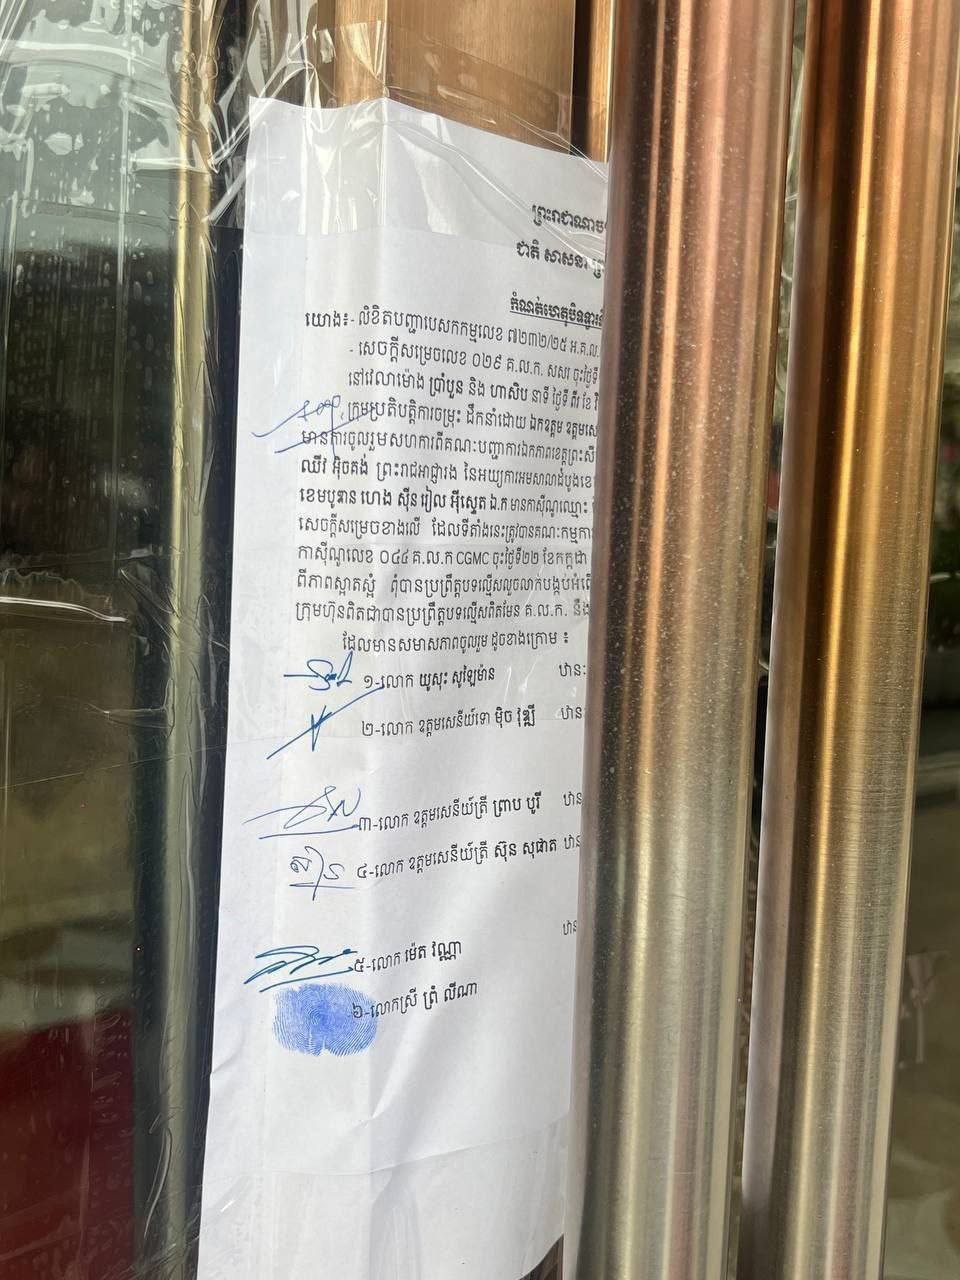 ព្រះរាជាណាច
ជាតិ សាសនា
កំណត់ហេតុបិទទ្វារ
យោង៖- លិខិតបញ្ជាបេសកកម្មលេខ ៧២៣២/២៥ អ.គ.ល.
- សេចក្ដីសម្រេចលេខ ០២៩ គ.ល.ក. សសរ ចុះថ្ងៃទី
នៅវេលាម៉ោង ប្រាំបួន និង ហាសិប នាទី ថ្ងៃទី ពីរ ខែ វិ
ក្រុមប្រតិបត្តិការចម្រុះ ដឹកនាំដោយ ឯកឧត្តម ឧត្តមសេ
មានការចូលរួមសហការពីគណៈបញ្ជាការឯកភាពខេត្តព្រះសី
ឈីវ អ៊ិចគង់ ព្រះរាជអាជ្ញារង នៃអយ្យការអមសាលាដំបូងខេ
ខេមបូឌាន ហេង ស៊ីន រៀល អ៊ីស្ទេត ឯ.ក មានកាស៊ីណូឈ្មោះ
សេចក្ដីសម្រេចខាងលើ ដែលទីតាំងនេះត្រូវបានគណៈកម្មការ
កាស៊ីណូលេខ ០៤៤ គ.ល.ក CGMC ចុះថ្ងៃទី២២ ខែកក្កដា
ពីភាពស្អាតស្អំ ពុំបានប្រព្រឹត្តបទល្មើសលួចលាក់បង្កប់អំពើ
ក្រុមហ៊ុនពិតជាបានប្រព្រឹត្តបទល្មើសពិតមែន គ.ល.ក. នឹង
ដែលមានសមាសភាពចូលរួម ដូចខាងក្រោម ៖
១-លោក យូសុះ សូឡៃម៉ាន ឋានៈ
២-លោក ឧត្តមសេនីយ៍ទោ ម៉ិច វុឌ្ឍី ឋាន
៣-លោក ឧត្តមសេនីយ៍ត្រី ព្រាប បូរី ឋាន
៤-លោក ឧត្តមសេនីយ៍ត្រី ស៊ុន សុផាត ឋាន
៥-លោក ម៉េត វណ្ណា ឋាន
៦-លោកស្រី ព្រំ លីណា